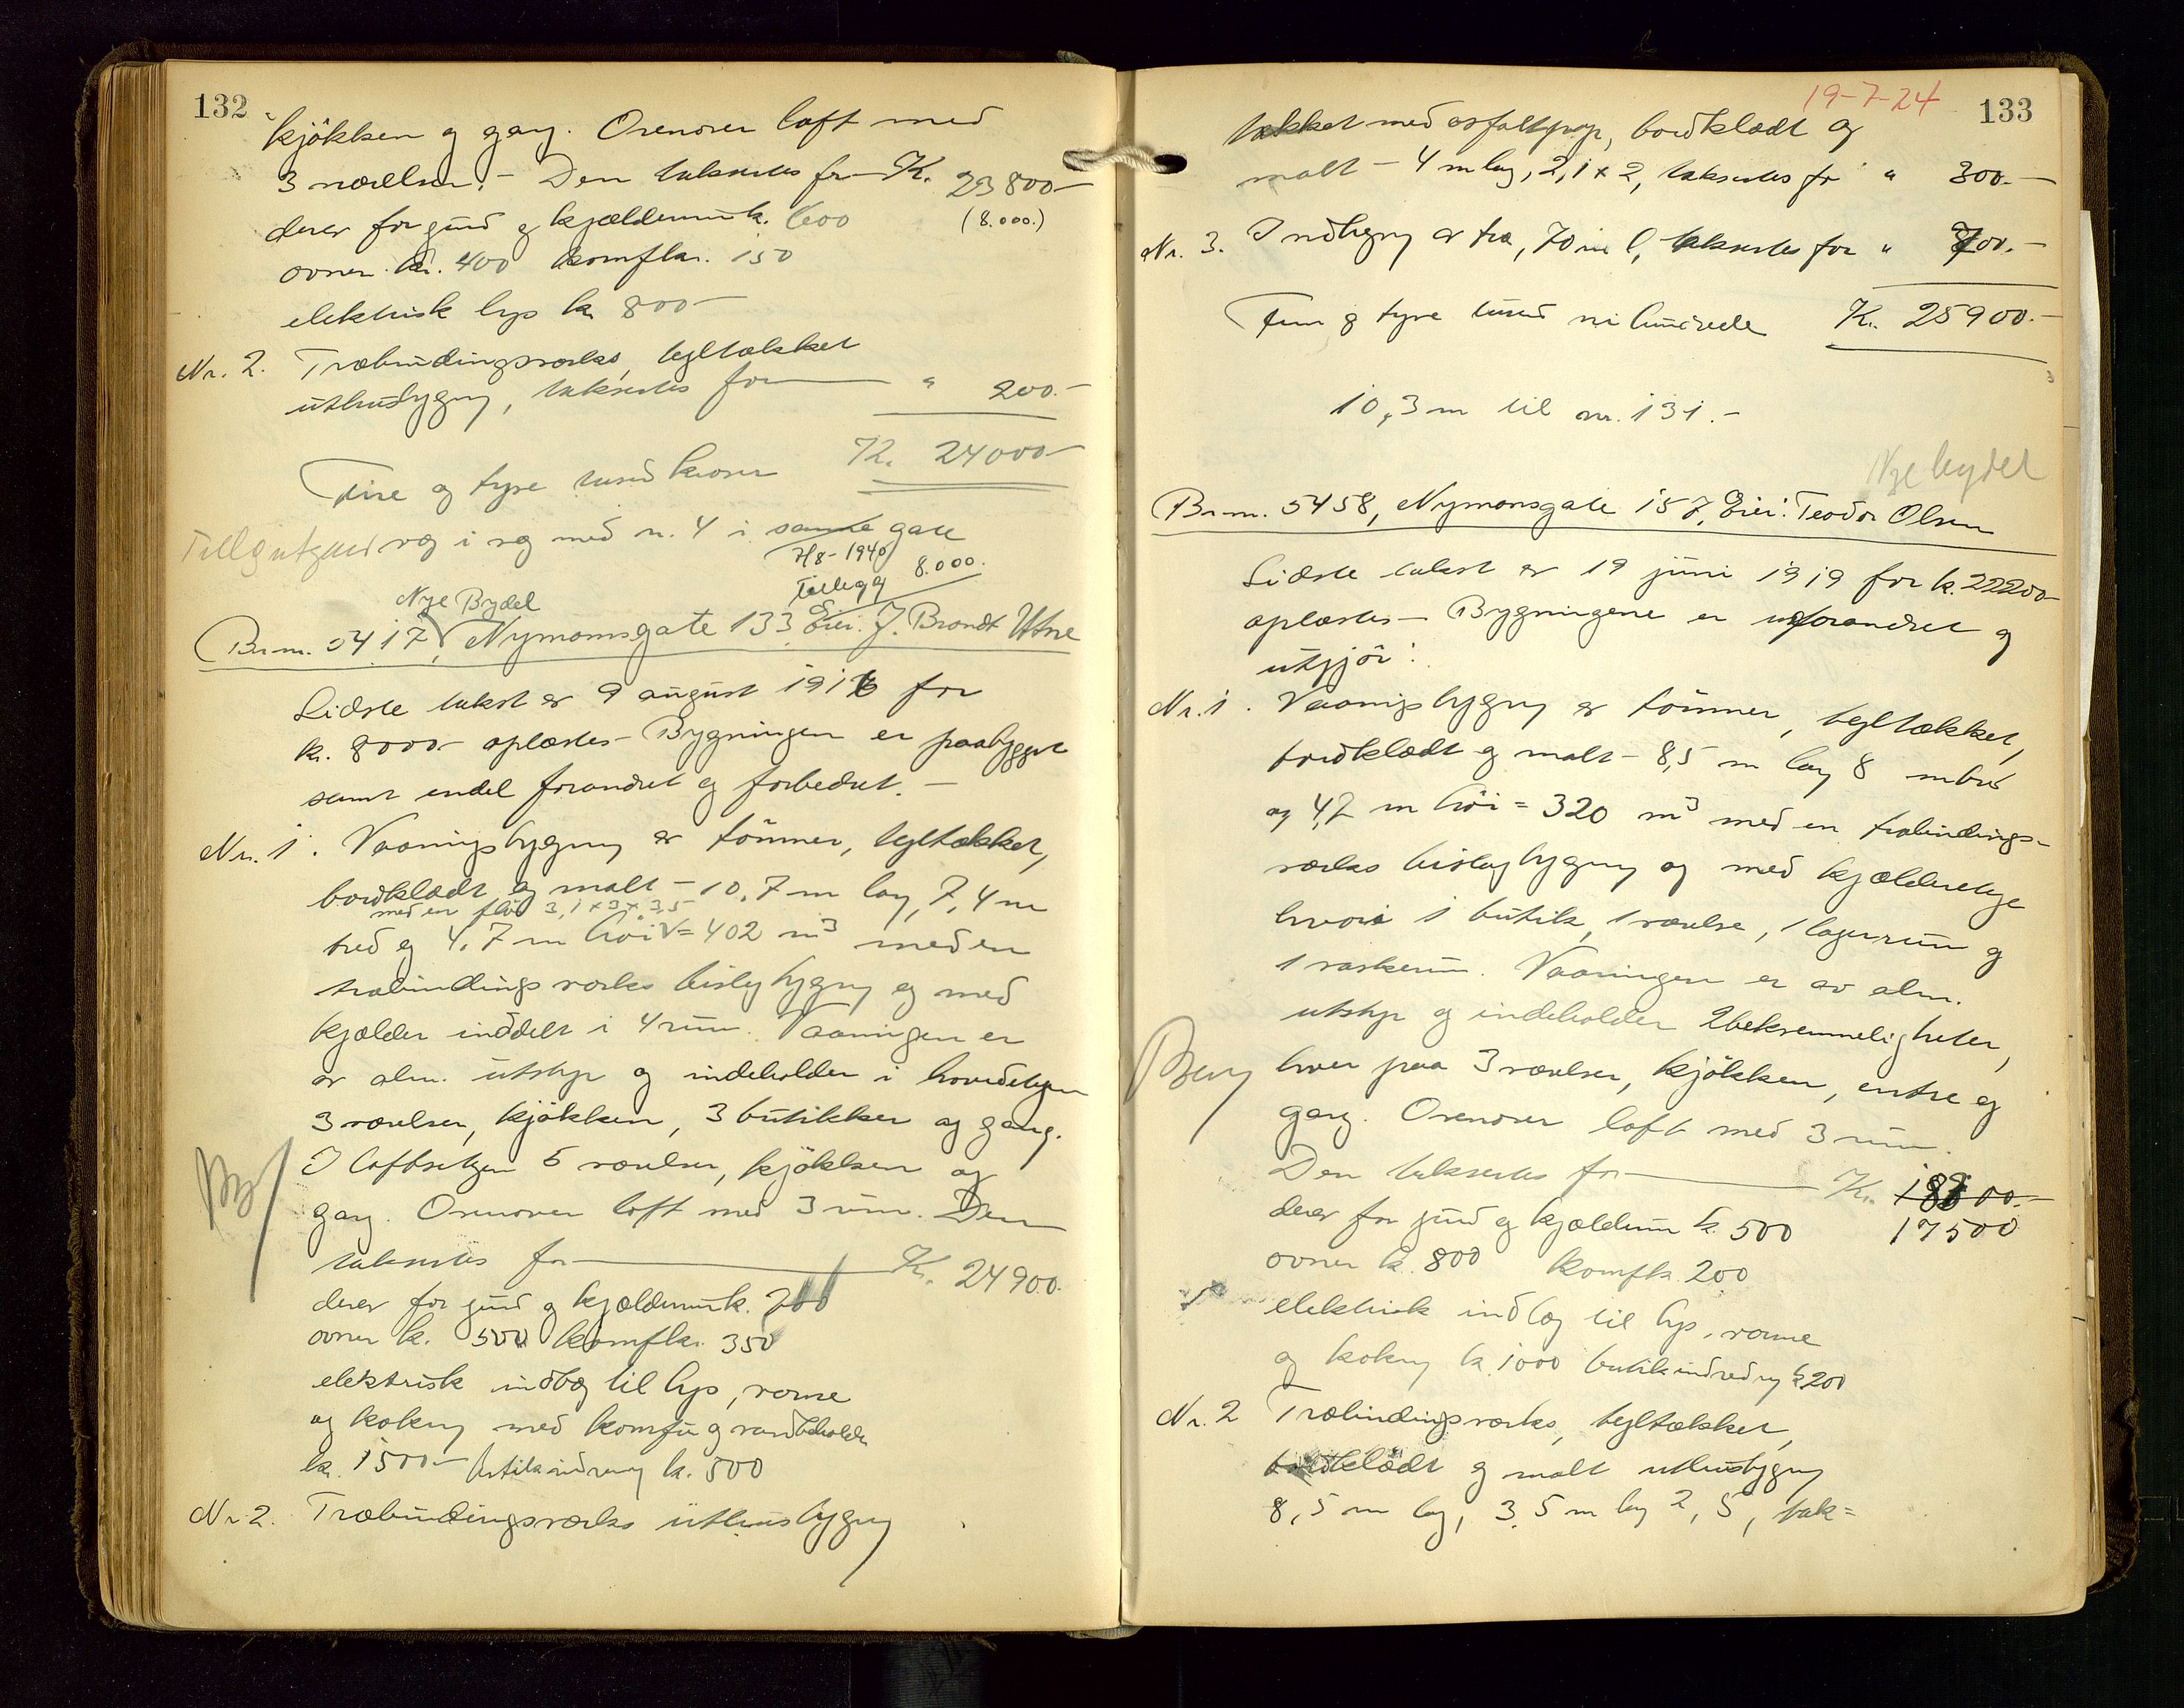 132
kjøkken og gang. Ovenover loft med
3 værelser. – Den takseres for – Kr. 23800 –
(8.000.)
derav for grund og kjældermur k. 600
ovner kr. 400 komfkr. 150
elektrisk lys kr 800 –
Nr. 2. Træbindingsverks, tegltækket
uthusbygng, takseres for — " 200. –
Fire og tyve tusend kroner Kr. 24000 –
væg i væg med nr. 4 i samme gate
7/8 - 1940
Tillegg 8.000.
Nye Bydel
Br. nr. 5417, Nymansgate 133 Eier: J. Brandt Utne
Sidste takst er 9 august 1916 for
kr. 8000 – oplæstes – Bygningen er paabygget
samt endel forandret og forbedret. –
Nr. 1. Vaaningsbygng av tømmer, tegltækket,
bordklædt og malt – 10,7 m lang, 7,4 m
med en fløi 3,1 x 3 x 3,5
bred og 4,7 m høi = 402 m3 med en
træbindingsverks bislagbygng og med
kjælder inddelt i 4 rum. Vaaningen er
av alm. utstyr og indeholder i hovedetagen
3 værelser, kjøkken, 3 butikker og gang.
I loftsetagen 5 værelser, kjøkken og
gang. Ovenover loft med 3 rum. Den
takseres for — Kr. 24900.
derav for grund og kjældermur k. 700
ovner kr. 500 komfkr. 350
elektrisk indlæg til lys, varme
og kokng med komfur og vandbeholder
kr. 1500 – butikindredng kr. 500
Nr. 2. Træbindingsverks uthusbygng
19-7-24
133
tækket med asfaltpap, bordklædt og
malt – 4 m lang, 2,1 x 2, takseres for " 300. –
Nr. 3. Indhegng av træ, 70 m l, takseres for " 700. –
Fem og tyve tusend ni hundrede Kr. 25900. –
10,3 m til nr. 131. –
Nye bydel
Br. nr. 5458, Nymansgate 157, Eier: Teodor Olsen
Sidste takst er 19 juni 1919 for kr. 22200 –
oplæstes – Bygningene er uforandret og
utgjør:
Nr. 1. Vaaningsbygng av tømmer, tegltækket,
bordklædt og malt – 8,5 m lang 8 m bred
og 4,7 m høi = 320 m3 med en træbindings-
verks bislagbygng og med kjælderetage
hvori 1 butik, 1 værelse, 1 lagerrum og
1 vaskerum. Vaaningen er av alm.
utstyr og indeholder 2 bekvemmeligheter,
hver paa 3 værelser, kjøkken, entre og
gang. Ovenover loft med 3 rum.
Den takseres for — Kr. 18800. –
17500
derav for grund og kjældermur k. 500
ovner kr. 800 komfkr. 200
elektrisk indlæg til lys, varme
og kokng kr. 1000 butikindredng k 200
Nr. 2 Træbindingsverks, tegltækket,
bordklædt og malt uthusbygng
8,5 m lang, 3,5 m og 2,5, tak=